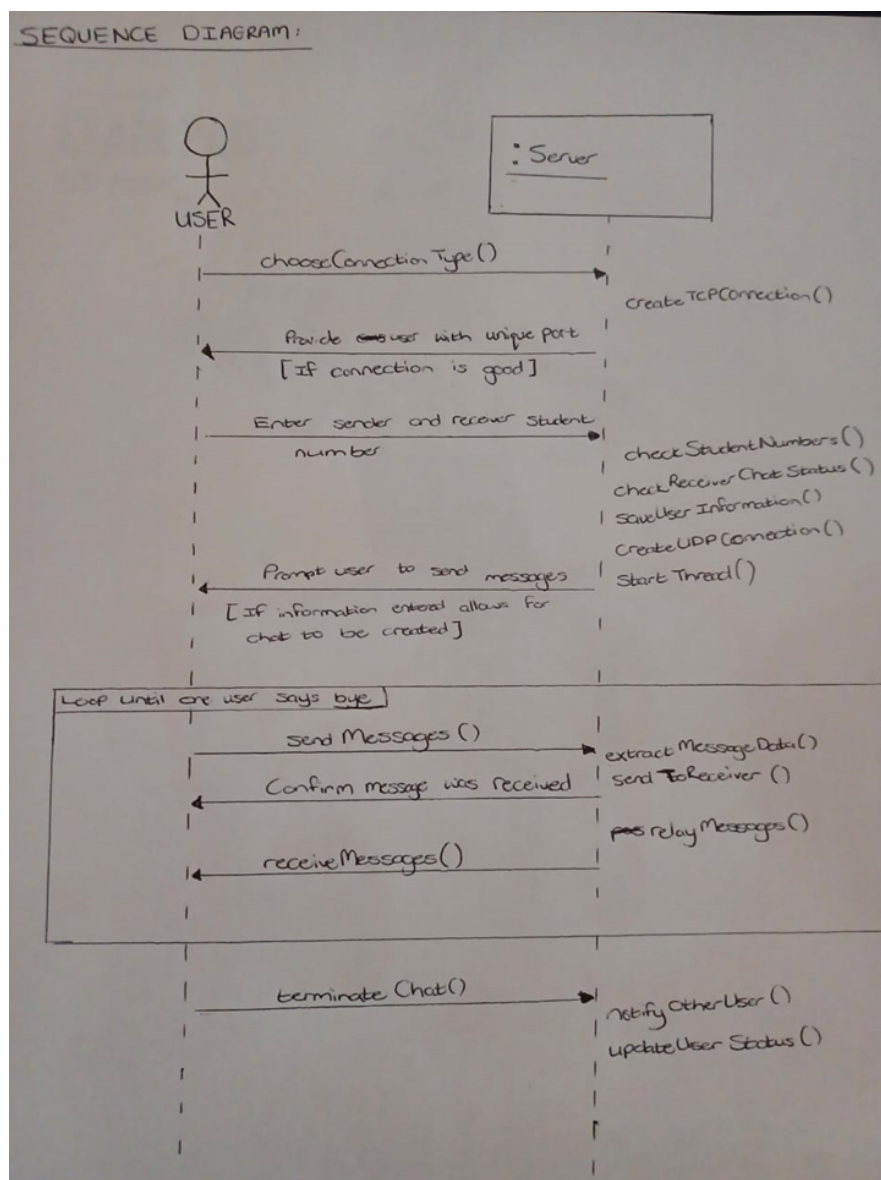 SEQUENCE DIAGRAM:
: Server
USER
chooseConnectionType()
createTCPConnection()
Provide user with unique port
[If connection is good]
Enter sender and receiver student
number
checkStudentNumbers()
checkReceiverChatStatus()
saveUserInformation()
createUDPConnection()
Prompt user to send messages
startThread()
[If information entered allows for
chat to be created]
Loop until one user says bye
sendMessages()
extractMessageData()
Confirm message was received
sendToReceiver()
relayMessages()
receiveMessages()
terminateChat()
notifyOtherUser()
updateUserStatus()